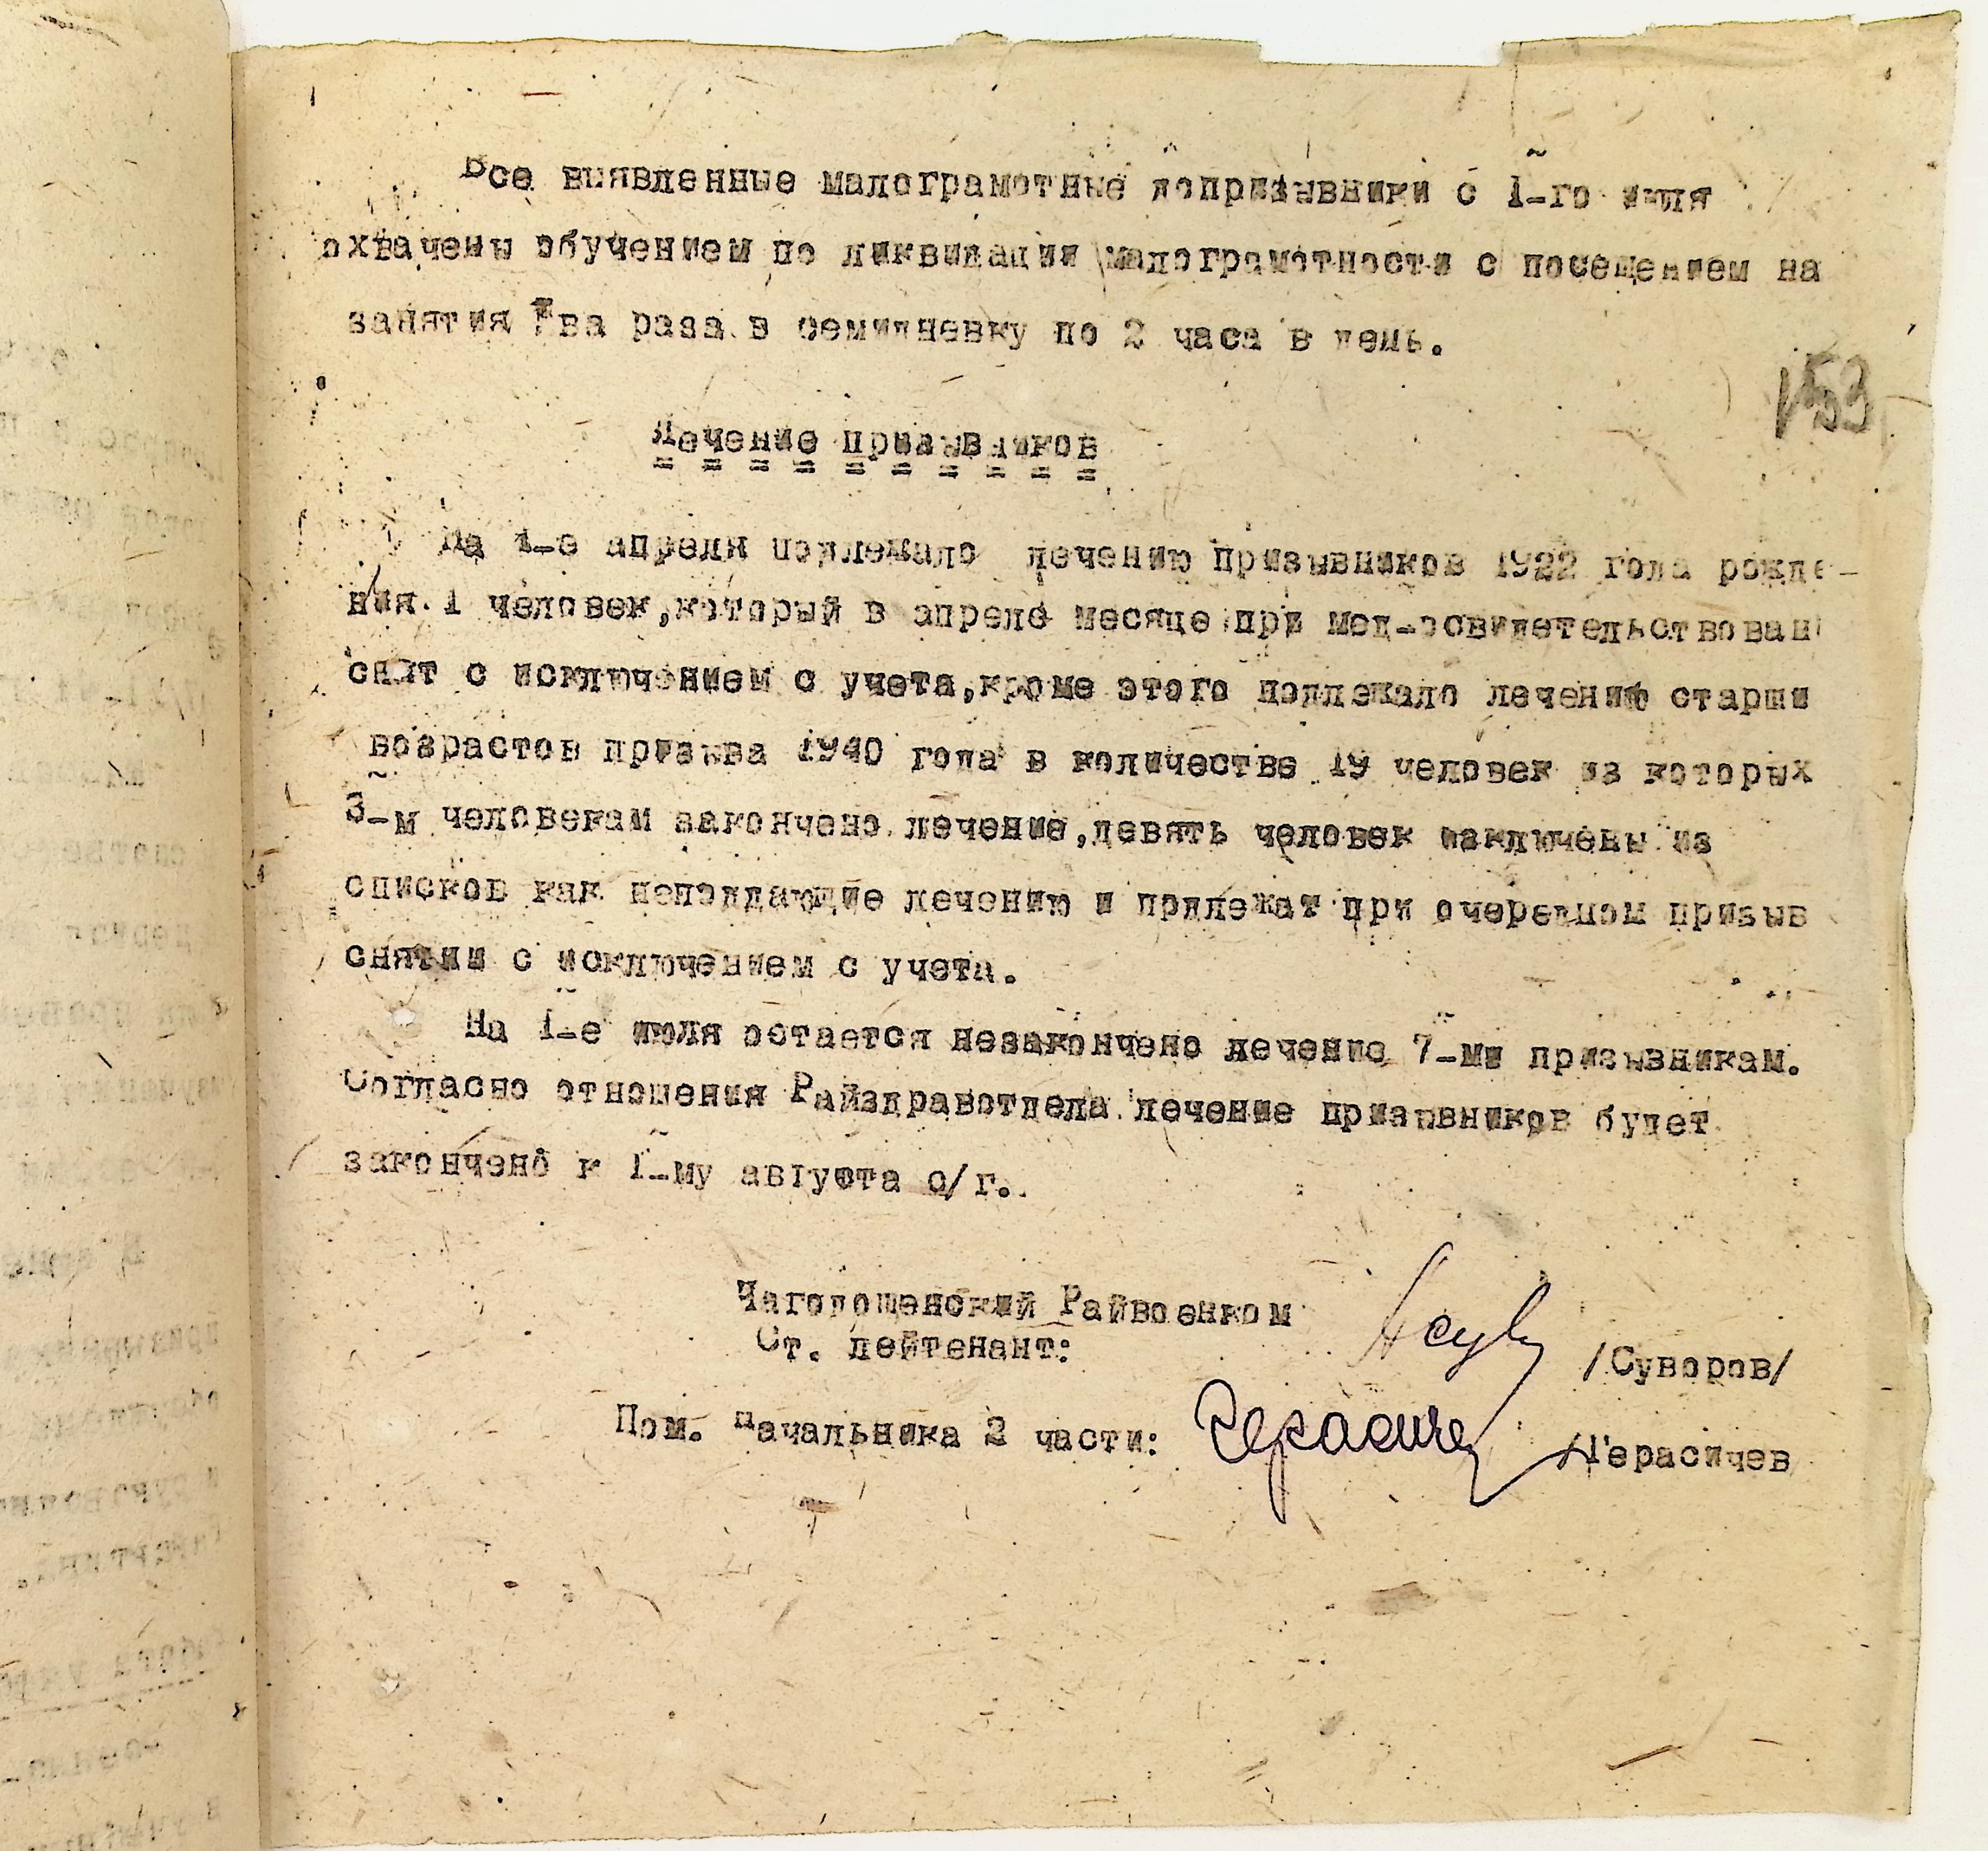 Все выявленные малограмотные допризывники с 1-го июля
охвачены обучением по ликвидации малограмотности с посещением на
занятия два раза в семидневку по 2 часа в день.
153
Лечение призывников
На 1-е апреля подлежало лечению призывников 1922 года рожде-
ния 1 человек,который в апреле месяце при мед-освидетельствовани
снят с исключением с учета,кроме этого подлежало лечению старши
возрастов призыва 1940 года в количестве 19 человек из которых
3-м человекам закончено лечение,девять человек исключены из
списков как неподдающие лечению и подлежат при очередном призыв
снятии с исключением с учета.
На 1-е июля остается незакончено лечение 7-ми призывникам.
Согласно отношения Райздравотдела лечение призывников будет
закончено к 1-му августа с/г.
Чагодощенский Райвоенком
Ст. лейтенант:
/Суворов/
Пом. начальника 2 части: Герасиче
/Герасичев